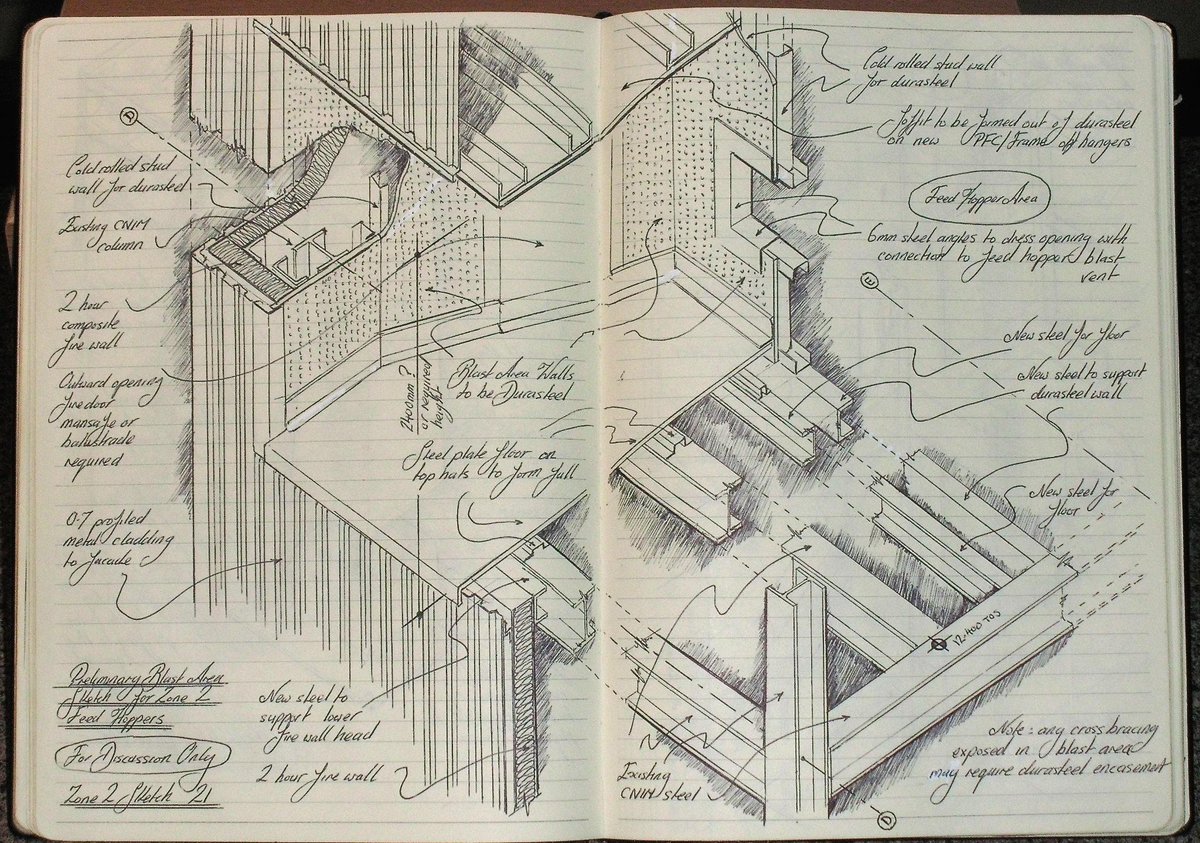 D
Cold rolled stud
wall for durasteel
Existing CNIM
column
2 hour
composite
fire wall
Outward opening
fire door
mansafe or
ballustrade
required
0.7 profiled
metal cladding
to facade
Preliminary Blast Area
Sketch for Zone 2
Feed Hoppers
For Discussion Only
Zone 2 Sketch 21
2400mm?
or required
height
Blast Area Walls
to be Durasteel
Steel plate floor on
top hats to form full
New steel to
support lower
fire wall head
2 hour fire wall
Cold rolled stud wall
for durasteel
Soffit to be formed out of durasteel
on new PFC/frame of hangers
Feed Hopper Area
6mm steel angles to dress opening with
connection to feed hopper blast
vent
E
New steel for floor
New steel to support
durasteel wall
New steel for
floor
12.400 TOS
Existing
CNIM steel
Note: any cross bracing
exposed in blast area
may require durasteel encasement
D